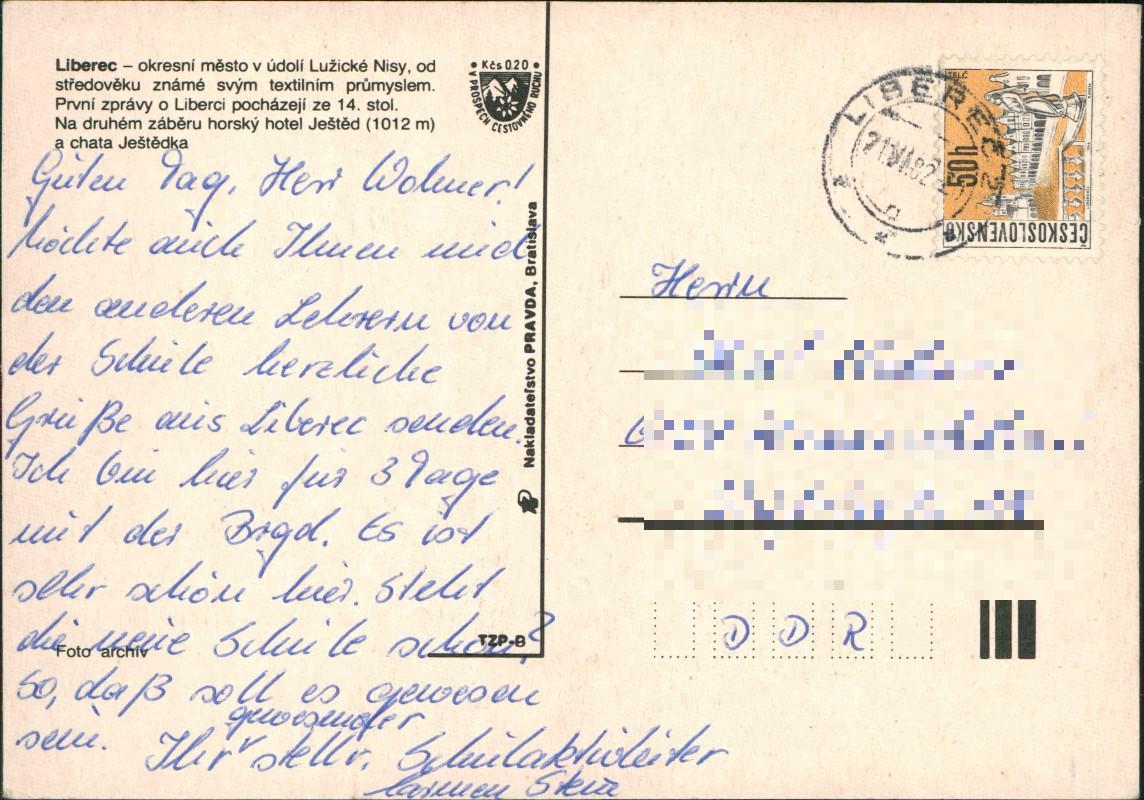 Liberec – okresní město v údolí Lužické Nisy, od
středověku známé svým textilním průmyslem.
První zprávy o Liberci pocházejí ze 14. stol.
Na druhém záběru horský hotel Ještěd (1012 m)
a chata Ještědka
Kčs 0.20
V PROSPĚCH CESTOVNÉHO RUCHU
Guten Tag, Herr
Möchte auch Ihnen und
den anderen Lehrern von
der Schule herzliche
Grüße aus Liberec senden.
Ich bin hier für 3 Tage
mit der Brgd. Es ist
sehr schön hier. Steht
die neue Schule schon?
So, daß soll es gewesen
sein.
gewesener
Ihr stellv. Schulaktivleiter
Carmen
Foto archív
TZP-B
Nakladateľstvo PRAVDA, Bratislava
LIBEREC
TELČ
50 h
ČESKOSLOVENSKO
Herrn
D D R